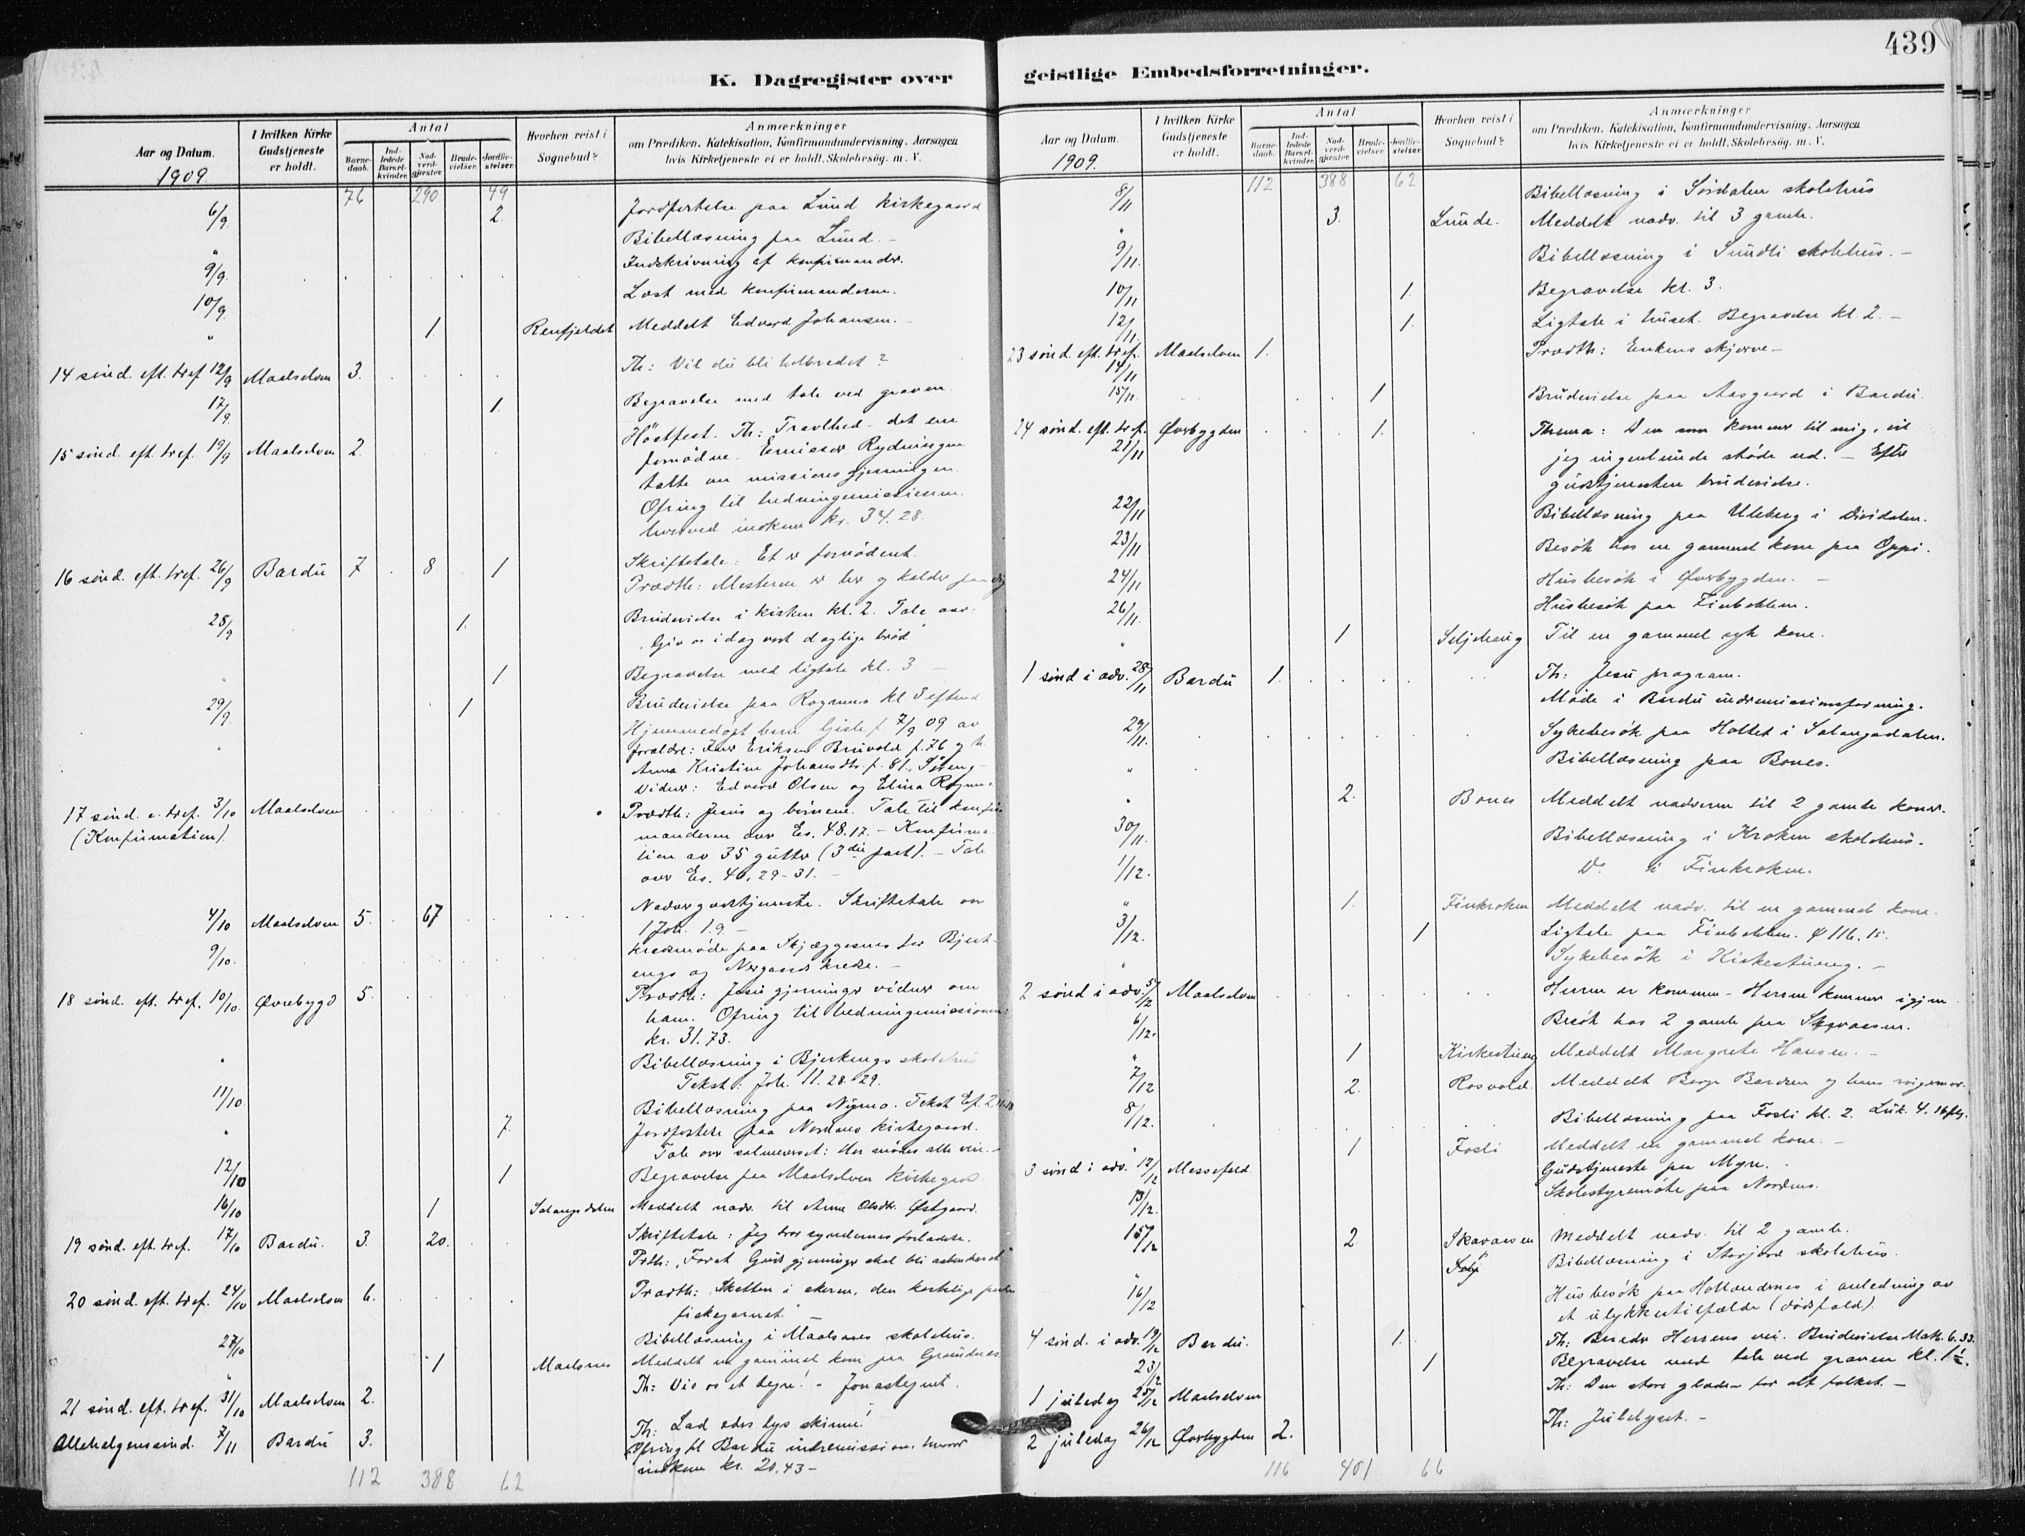 439
K. Dagregister over
geistlige Embedsforretninger.
Aar og Datum.
1909.
I hvilken Kirke Gudstjeneste er holdt.
Antal
Barnedaab.
Indledede Barselkvinder.
Nadverdgjæster.
Brudevielser.
Jordfæstelser.
Hvorhen reist i Sognebud?
Anmærkninger
om Prædiken, Katekisation, Konfirmandundervisning, Aarsagen
hvis Kirketjeneste ei er holdt, Skolebesøg. m. V.
76 290 49
6/9. 2 Jordfestelse paa Lund kirkegaard
" Bibellæsning paa Lund. -
9/9. Indskrivning af konfirmander.
10/9. Læst med konfirmanderne.
" 1 Renfjeldet Meddelt Edvard Johansen. -
14 sønd. eft. tref. 12/9 Maalselven 3. Th: Vil du bli helbredet?
17/9. 1. Begravelse med tale ved graven.
15 sønd. eft. tref. 19/9 Maalselven 2. Høstfest. Th: Travlhed - det ene
fornødne. Emissær Rydningen
talte om missionsgjerningen.
Ofring til hedningemissionen.
hvorved indkom kr. 34.28.
16 sønd. eft. tref. 26/9 Bardu 7 8. 1 Skriftetale: Et er fornødent.
Prædth: Mesteren er her og kalder paa dig
28/9 1. Brudevielse i kirken kl. 2. Tale over:
"Giv os idag vort daglige brød"
" 1 Begravelse med ligtale kl. 3 -
29/9. 1 Brudevielse paa Rognmo kl 3 efterm
Hjemmedøpt barn f. 7/9 09 av
forældre: Eriksen f. 76 og h.
Anna Kristine Johansdtr. f. 81,
Vidner: Edvard Olsen og Elina
17 sønd. e. tref. 3/10 Maalselven Prædth: Jesus og børnene. Tale til konfir-
(Konfirmation) manderne over Es. 48.17. - Konfirma-
tion av 35 gutter (3die part). - Tale
over Es. 40, 29-31. -
4/10 Maalselven 5. 67 Nadvergudstjeneste. Skriftetale om
1 Joh. 1.9 -
9/10. Kredsmøde paa Skjæggesnes for Bjerk-
engs og kreds. -
18 sønd. eft. tref. 10/10. Øvrebygd 5. Prædth: Jesu gjerninger vidner om
ham. Ofring til hedningemissionen:
kr. 31.73.
" Bibellæsning i Bjerkengs skolehus
Tekst: Joh. 11.28-29.
11/10 Bibellæsning paa Nymo. Tekst Ef. 2
" 7. Jordfestelse paa Nordmo kirkegaard.
Tale over salmeverset: Her mødes alle veie. -
12/10 1 Begravelse paa Maalselven kirkegaard.
16/10 1 Salangsdalen Meddelt nadv. til Anne Olsdtr. Østgaard.
19 sønd. eft. tref. 17/10 Bardu. 3. 20. Skriftetale: Jeg tror syndernes forladelse.
Prth: Forat Guds gjerninger skal bli aabenbaret"
20 sønd. eft. tref. 24/10 Maalselven 6. Prædth: Skatten i akeren, den kostelige perle
fiskegarnet.
27/10 Bibellæsning i Maalsnes skolehus.
" 1 Maalsnes Meddelt en gammel kone paa Grundnes
21 sønd. eft. tref. 31/10 Maalselven 2. Th: Vis os et tegn! - Jonastegnet.
Allehelgensønd. 7/11 Bardu 3. Th: Lad eders lys skinne!
Ofring til Bardu indremission, hvorved
indkom kr. 20.43 -
112 388 62
Aar og Datum.
1909.
I hvilken Kirke Gudstjeneste er holdt.
Antal
Barnedaab.
Indledede Barselkvinder.
Nadverdgjæster.
Brudevielser.
Jordfæstelser.
Hvorhen reist i Sognebud?
Anmærkninger
om Prædiken, Katekisation, Konfirmandundervisning, Aarsagen
hvis Kirketjeneste ei er holdt, Skolebesøg. m. V.
112 388 62
8/11 Bibellæsning i Sørdalen skolehus
" 3. Lunde. Meddelt nadv. til 3 gamle.
9/11. Bibellæsning i Sundli skolehus. -
10/11 1. Begravelse kl. 3.
12/11. 1. Ligtale i huset. Begravelse kl 2. -
23 sønd. eft. tref. 14/11 Maalselven 1. Prædth: Enkens skjærv. -
15/11. 1 Brudevielse paa Aasgaard i Bardu.
24 sønd. eft. tref. 21/11 Øverbygden 1. Thema: Den som kommer til mig, vil
jeg ingenlunde støde ud. - Efter
gudstjenesten brudevielse.
22/11 Bibellæsning paa Uleberg i Dividalen.
23/11 Besøk hos en gammel kone paa Oppi.
24/11 Husbesøk i Øverbygden. -
26/11. Husbesøk paa Finbakken.
" 1 Seljehaug Til en gammel syk kone.
1 sønd i adv. 28/11 Bardu 1. Th: Jesu program.
Møde i Bardu indremissionsforening.
29/11. Sykebesøk paa Holtet i Salangsdalen.
" Bibellæsning paa Bones.
" 2. Bones Meddelt nadveren til 2 gamle koner.
30/11. Bibellæsning i Kroken skolehus.
1/12. Do. i Finkroken.
" 1. Finkroken Meddelt nadv. til en gammel kone.
3/12. 1 Ligtale paa Finbakken. ψ 116, 15.
" Sykebesøk i Kirkestueng. -
2 sønd i adv. 5/12 Maalselven Herren er kommen - Herren kommer igjen
6/12. Besøk hos 2 gamle paa
" 1 Kirkestueng Meddelt Margrete Hansen. -
7/12 2. Rosvold. Meddelt Bardsen og hans svigermor.
8/12. Bibellæsning paa Fosli kl. 2. Luk. 4. 16 flg.
" 1 Fosli Meddelt en gammel kone. -
3 sønd i adv. 12/12 Messefald Gudstjeneste paa Myre. -
13/12. Skolestyremøte paa Nordmo.
15/12 2 Skavaasen Meddelt nadv. til 2 gamle.
" Bibellæsning i Storjord skolehus.
16/12 Husbesøk paa Hollændernes i anledning av
et ulykkestilfælde (dødsfald).
4 sønd. i adv. 19/12 Bardu. 1. Th: Bered Herrens vei. Brudevielse Matt. 6.33.
23/12 1 Begravelse med tale ved graven kl. 1½.
1 juledag 25/12 Maalselven Th: Den store glæde for alt folket. -
2 juledag 26/12 Øverbygden 2. Th: Julelyset. -
116 401 66